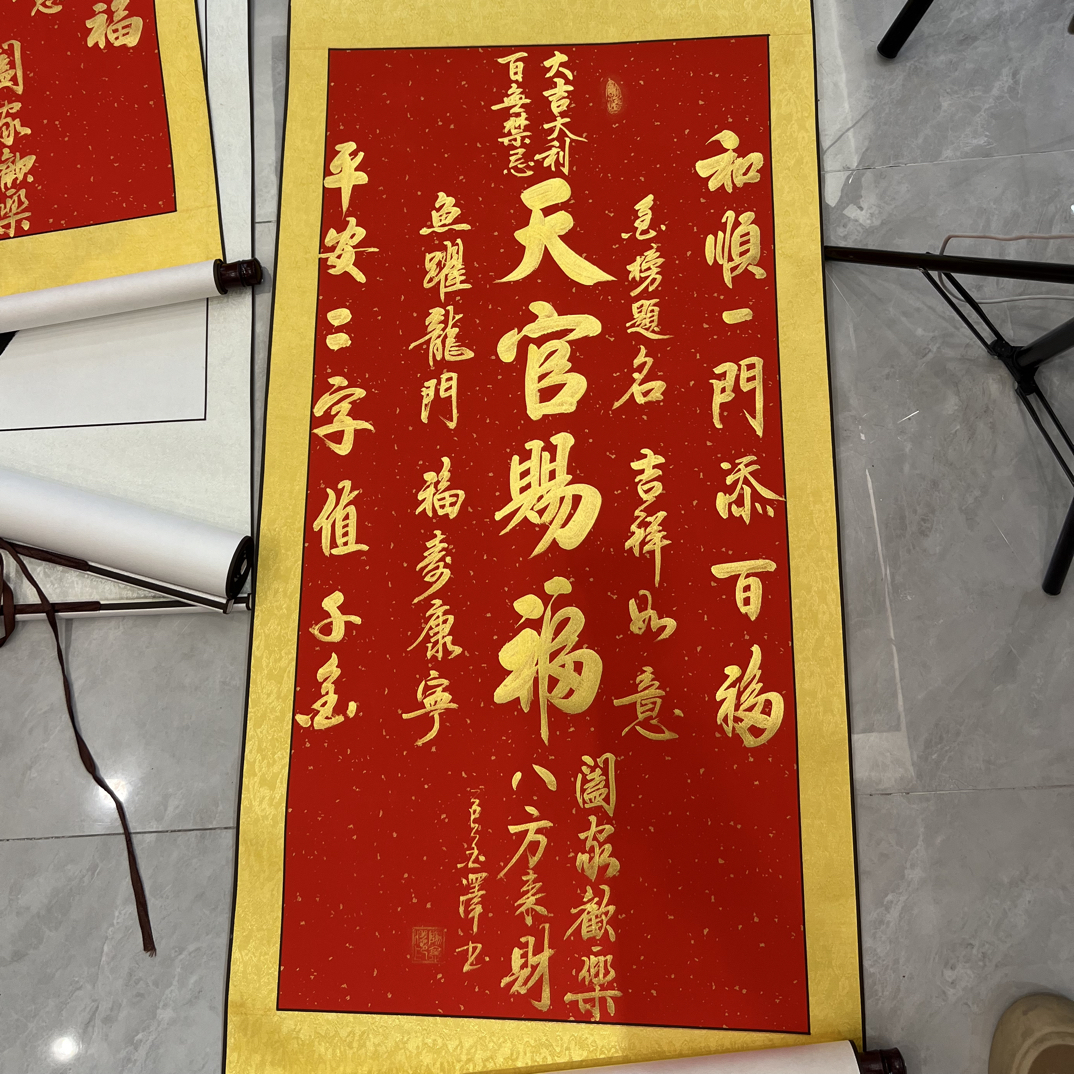 和順一門添百福
金榜題名 吉祥如意
大吉大利
百無禁忌
天官賜福
闔家歡樂
八方来財
魚躍龍門 福寿康寧
平安二字值千金
澤书
福
闔家歡樂